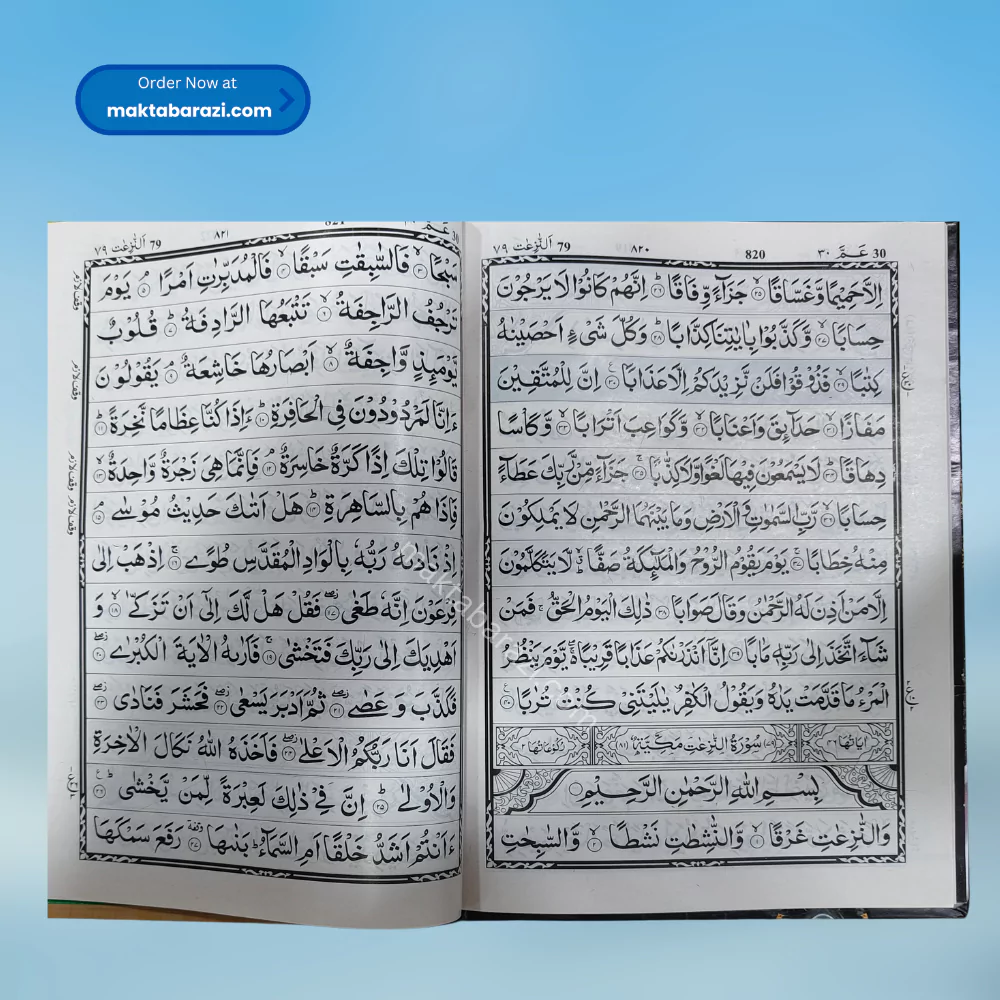 Order Now at
maktabarazi.com
30 عَمَّ ٣٠ 820 ٨٢٠ 79 اَلنّٰزِعٰت ٧٩
اِلَّا حَمِيْمًا وَّغَسَّاقًا ۙ‏﴿۲۵﴾ جَزَآءً وِّفَاقًا ؕ‏﴿۲۶﴾ اِنَّهُمْ كَانُوْا لَا يَرْجُوْنَ
حِسَابًا ۙ‏﴿۲۷﴾ وَّكَذَّبُوْا بِاٰيٰتِنَا كِذَّابًا ؕ‏﴿۲۸﴾ وَكُلَّ شَىْءٍ اَحْصَيْنٰهُ
كِتٰبًا ۙ‏﴿۲۹﴾ فَذُوْقُوْا فَلَنْ نَّزِيْدَكُمْ اِلَّا عَذَابًا ﴿۳۰﴾ اِنَّ لِلْمُتَّقِيْنَ
مَفَازًا ۙ‏﴿۳۱﴾ حَدَآئِقَ وَاَعْنَابًا ۙ‏﴿۳۲﴾ وَّكَوَاعِبَ اَتْرَابًا ۙ‏﴿۳۳﴾ وَّكَاْسًا
دِهَاقًا ؕ‏﴿۳۴﴾ لَا يَسْمَعُوْنَ فِيْهَا لَغْوًا وَّلَا كِذّٰبًا ۚ‏﴿۳۵﴾ جَزَآءً مِّنْ رَّبِّكَ عَطَآءً
حِسَابًا ۙ‏﴿۳۶﴾ رَّبِّ السَّمٰوٰتِ وَالْاَرْضِ وَمَا بَيْنَهُمَا الرَّحْمٰنِ لَا يَمْلِكُوْنَ
مِنْهُ خِطَابًا ۚ‏﴿۳۷﴾ يَوْمَ يَقُوْمُ الرُّوْحُ وَالْمَلٰٓئِكَةُ صَفًّا ؕۙ لَّا يَتَكَلَّمُوْنَ
اِلَّا مَنْ اَذِنَ لَهُ الرَّحْمٰنُ وَقَالَ صَوَابًا ﴿۳۸﴾ ذٰلِكَ الْيَوْمُ الْحَقُّ ۚ فَمَنْ
شَآءَ اتَّخَذَ اِلٰى رَبِّهٖ مَاٰبًا ﴿۳۹﴾ اِنَّآ اَنْذَرْنٰكُمْ عَذَابًا قَرِيْبًا ۖۚ يَّوْمَ يَنْظُرُ
الْمَرْءُ مَا قَدَّمَتْ يَدٰهُ وَيَقُوْلُ الْكٰفِرُ يٰلَيْتَنِىْ كُنْتُ تُرٰبًا ﴿۴۰﴾
اٰيَاتُهَا ٤٦ (٧٩) سُوْرَةُ النّٰزِعٰتِ مَكِّيَّةٌ (٨١) رُكُوْعَاتُهَا ٢
بِسْمِ اللّٰهِ الرَّحْمٰنِ الرَّحِيْمِ
وَالنّٰزِعٰتِ غَرْقًا ۙ‏﴿۱﴾ وَّالنّٰشِطٰتِ نَشْطًا ۙ‏﴿۲﴾ وَّالسّٰبِحٰتِ
30 عَمَّ 821 ٨٢١ 79 اَلنّٰزِعٰت ٧٩
سَبْحًا ۙ‏﴿۳﴾ فَالسّٰبِقٰتِ سَبْقًا ۙ‏﴿۴﴾ فَالْمُدَبِّرٰتِ اَمْرًا ۘ‏﴿۵﴾ يَوْمَ
تَرْجُفُ الرَّاجِفَةُ ۙ‏﴿۶﴾ تَتْبَعُهَا الرَّادِفَةُ ؕ‏﴿۷﴾ قُلُوْبٌ
يَّوْمَئِذٍ وَّاجِفَةٌ ۙ‏﴿۸﴾ اَبْصَارُهَا خَاشِعَةٌ ۘ‏﴿۹﴾ يَقُوْلُوْنَ
ءَاِنَّا لَمَرْدُوْدُوْنَ فِى الْحَافِرَةِ ؕ‏﴿۱۰﴾ ءَاِذَا كُنَّا عِظَامًا نَّخِرَةً ؕ‏﴿۱۱﴾
قَالُوْا تِلْكَ اِذًا كَرَّةٌ خَاسِرَةٌ ۘ‏﴿۱۲﴾ فَاِنَّمَا هِىَ زَجْرَةٌ وَّاحِدَةٌ ۙ‏﴿۱۳﴾
فَاِذَا هُمْ بِالسَّاهِرَةِ ؕ‏﴿۱۴﴾ هَلْ اَتٰىكَ حَدِيْثُ مُوْسٰى ۘ‏﴿۱۵﴾
اِذْ نَادٰىهُ رَبُّهٗ بِالْوَادِ الْمُقَدَّسِ طُوًى ۚ‏﴿۱۶﴾ اِذْهَبْ اِلٰى
فِرْعَوْنَ اِنَّهٗ طَغٰى ۖ‏﴿۱۷﴾ فَقُلْ هَلْ لَّكَ اِلٰٓى اَنْ تَزَكّٰى ۙ‏﴿۱۸﴾ وَ
اَهْدِيَكَ اِلٰى رَبِّكَ فَتَخْشٰى ۚ‏﴿۱۹﴾ فَاَرٰىهُ الْاٰيَةَ الْكُبْرٰى ۖ‏﴿۲۰﴾
فَكَذَّبَ وَ عَصٰى ۖ‏﴿۲۱﴾ ثُمَّ اَدْبَرَ يَسْعٰى ۖ‏﴿۲۲﴾ فَحَشَرَ فَنَادٰى ۖ‏﴿۲۳﴾
فَقَالَ اَنَا رَبُّكُمُ الْاَعْلٰى ۖ‏﴿۲۴﴾ فَاَخَذَهُ اللّٰهُ نَكَالَ الْاٰخِرَةِ
وَالْاُوْلٰى ؕ‏﴿۲۵﴾ اِنَّ فِىْ ذٰلِكَ لَعِبْرَةً لِّمَنْ يَّخْشٰى ؕ‏﴿۲۶﴾
ءَاَنْتُمْ اَشَدُّ خَلْقًا اَمِ السَّمَآءُ ؕ بَنٰىهَا ﴿۲۷﴾ رَفَعَ سَمْكَهَا
وقف لازم
وقف لازم
وقف لازم
وقف لازم
maktabarazi.com